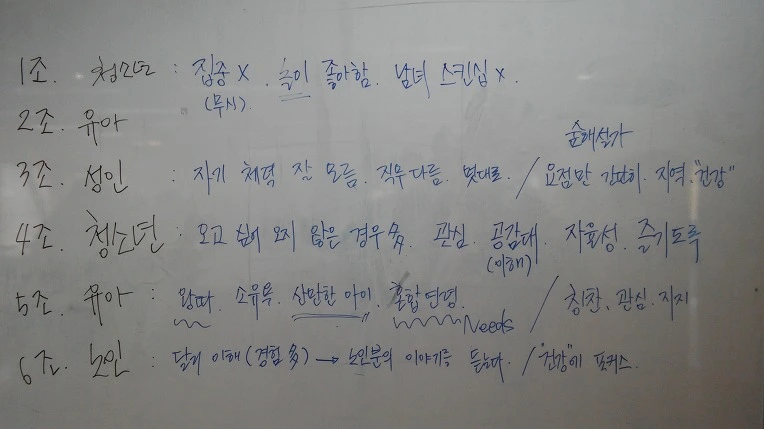 1조. 청소년 : 집중 X . 놀이 좋아함. 남녀 스킨십 X.
(무시).
2조. 유아
숲해설가
3조. 성인 : 자기 체력 잘 모름. 직무 다름. 멋대로. / 요점만 간단히. 지역. "건강"
4조. 청소년 : 오고 싶어 오지 않은 경우 多. 관심. 공감대. 자율성. 즐기도록
(이해)
5조. 유아 : 왕따. 소유욕. 산만한 아이. 혼합연령. / 칭찬. 관심. 지지
Needs
6조. 노인 : 달리 이해 (경험 多) → 노인분의 이야기를 듣는다. / "건강"에 포커스.